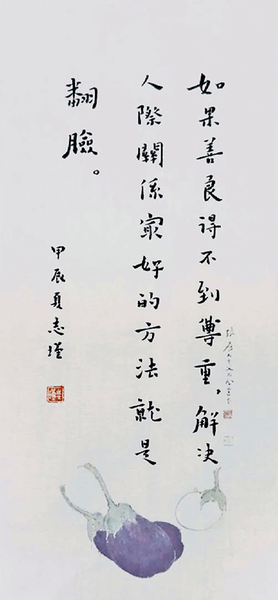 如果善良得不到尊重，解决
人際關係最好的方法就是
翻臉。
甲辰夏志瑾